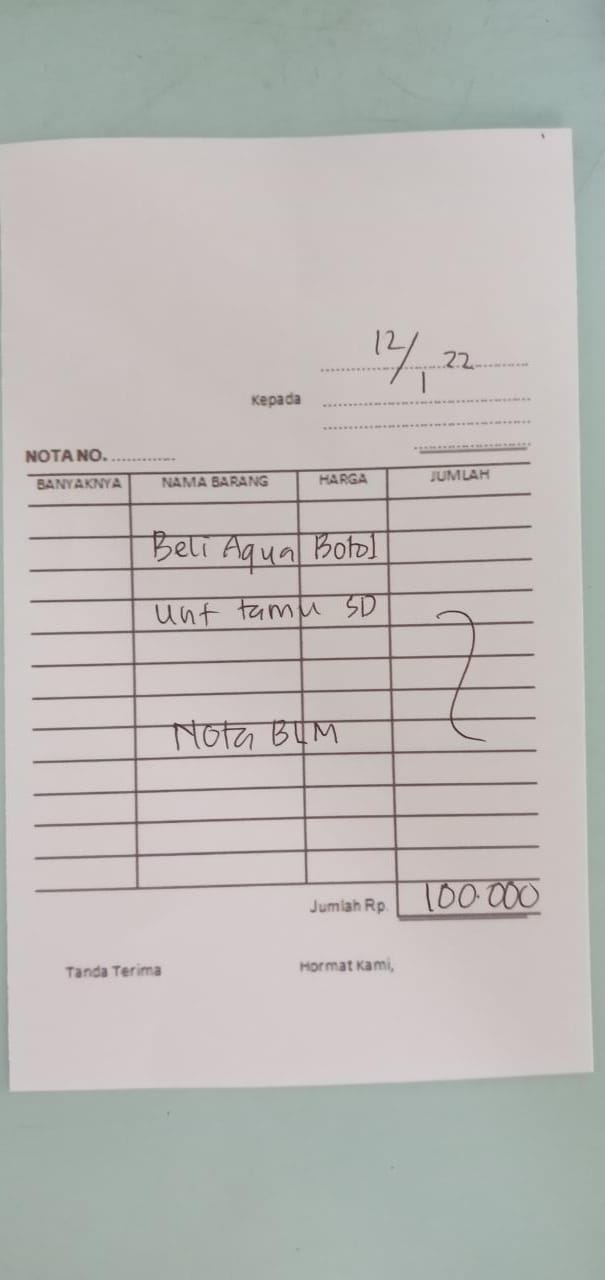 12/1 22
Kepada
NOTA NO.
BANYAKNYA NAMA BARANG HARGA JUMLAH
Beli Aqua Botol
Unt tamu SD
Nota BLM
Jumlah Rp. 100.000
Tanda Terima Hormat Kami,